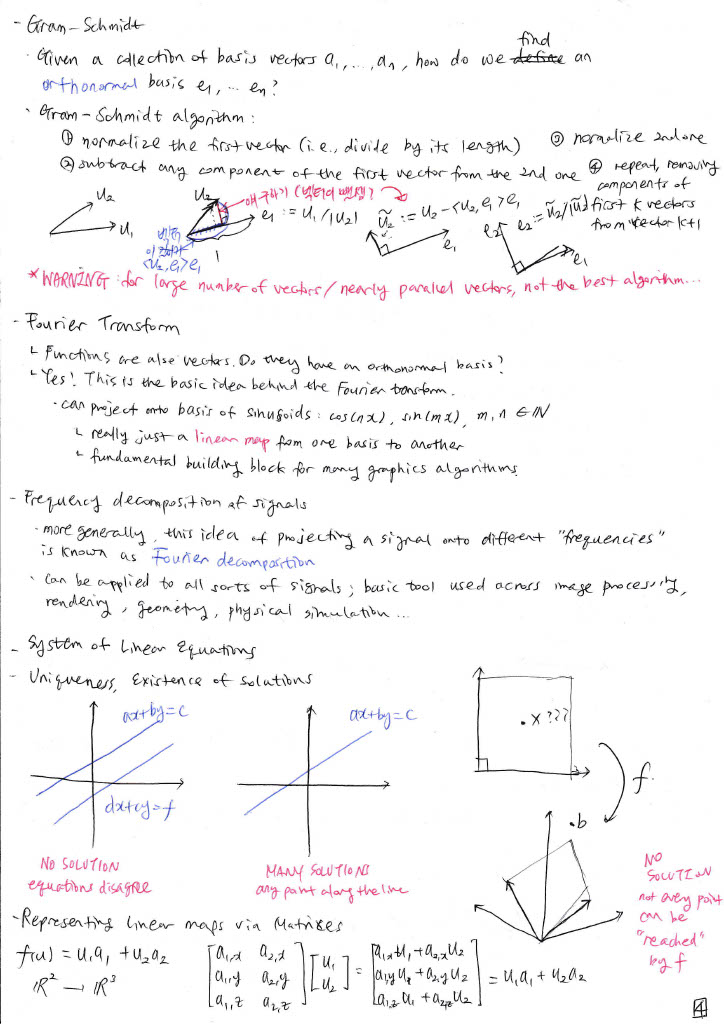 - Gram-Schmidt
· Given a collection of basis vectors a₁, ..., aₙ, how do we define find an
orthonormal basis e₁, ... eₙ?
· Gram-Schmidt algorithm:
① normalize the first vector (i.e., divide by its length) ③ normalize 2nd one
② subtract any component of the first vector from the 2nd one ④ repeat, removing
components of
first k vectors
from vector k+1
u₂
u₁
u₂
구하기 (벡터의 뺄셈?)
e₁ := u₁/|u₂|
1
<u₂,e₁>e₁
ũ₂ := u₂-<u₂,e₁>e₁
e₁
e₂
e₂ := ũ₂/|ũ₂|
e₁
*WARNING: for large number of vectors / nearly parallel vectors, not the best algorithm...
- Fourier Transform
└ Functions are also vectors. Do they have an orthonormal basis?
└ Yes! This is the basic idea behind the Fourier transform.
· can project onto basis of sinusoids: cos(nx), sin(mx), m,n ∈ ℕ
└ really just a linear map from one basis to another
└ fundamental building block for many graphics algorithms
- Frequency decomposition of signals
· more generally, this idea of projecting a signal onto different "frequencies"
is known as Fourier decomposition
· can be applied to all sorts of signals; basic tool used across image processing,
rendering, geometry, physical simulation...
- System of Linear Equations
- Uniqueness, Existence of solutions
ax+by=c
dx+ey=f
NO SOLUTION
equations disagree
ax+by=c
MANY SOLUTIONS
any point along the line
·x ???
f
·b
NO
SOLUTION
not every point
can be
"reached"
by f
- Representing Linear maps via Matrices
f(u) = u₁a₁ + u₂a₂
ℝ² → ℝ³
[a₁,x a₂,x] [u₁] = [a₁,xu₁+a₂,xu₂] = u₁a₁+u₂a₂
[a₁,y a₂,y] [u₂] [a₁,yu₁+a₂,yu₂]
[a₁,z a₂,z] [a₁,zu₁+a₂,zu₂]
4